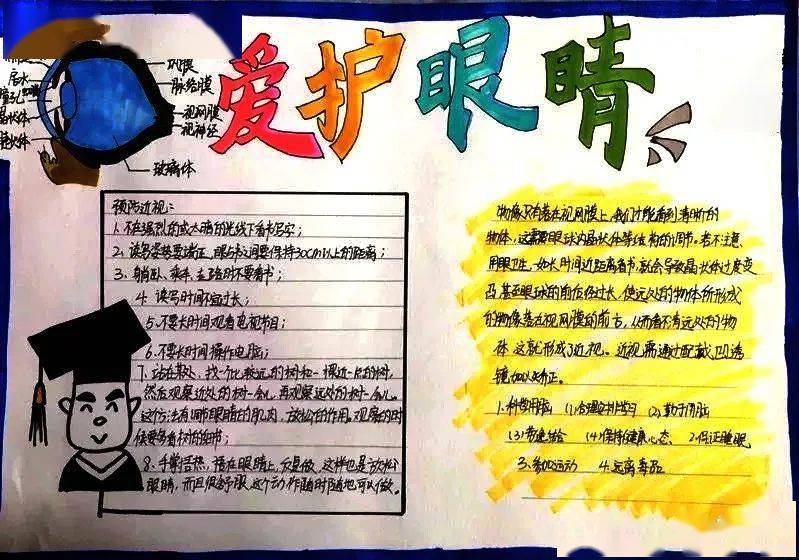 爱护眼睛
巩膜
房水
脉络膜
瞳孔
视网膜
晶状体
视神经
玻璃体
预防近视：
1、不在强烈的或太暗的光线下看书写字；
2、读写姿势要端正，眼与书之间要保持30cm以上的距离；
3、躺卧、乘车、走路时不要看书；
4、读写时间不宜过长；
5、不要长时间观看电视节目；
6、不要长时间操作电脑；
7、站在某处，找一个比较远的树和一棵近一点的树，
然后观察近处的树一会儿，再观察远处的树一会儿。
这方法有调节眼睛的肌肉，放松的作用。观察的时
候要多看树的细节；
8、手掌搓热，捂在眼睛上，反复做，这样也是放松
眼睛，而且很舒服，这个动作随时随地可以做。
物像只有落在视网膜上，我们才能看到清晰的
物体，这需要眼球内晶状体等结构的调节。若不注意
用眼卫生，如长时间近距离看书，就会导致晶状体过度变
凸，甚至眼球的前后径过长，使远处的物体所形成
的物像落在视网膜的前方，从而看不清远处的物
体，这就形成了近视。近视需通过配戴凹透
镜加以矫正。
1、科学用脑 (1)合理安排学习 (2)勤于用脑
(3)劳逸结合 (4)保持健康心态、2、保证睡眠
3、参加运动 4、远离毒品